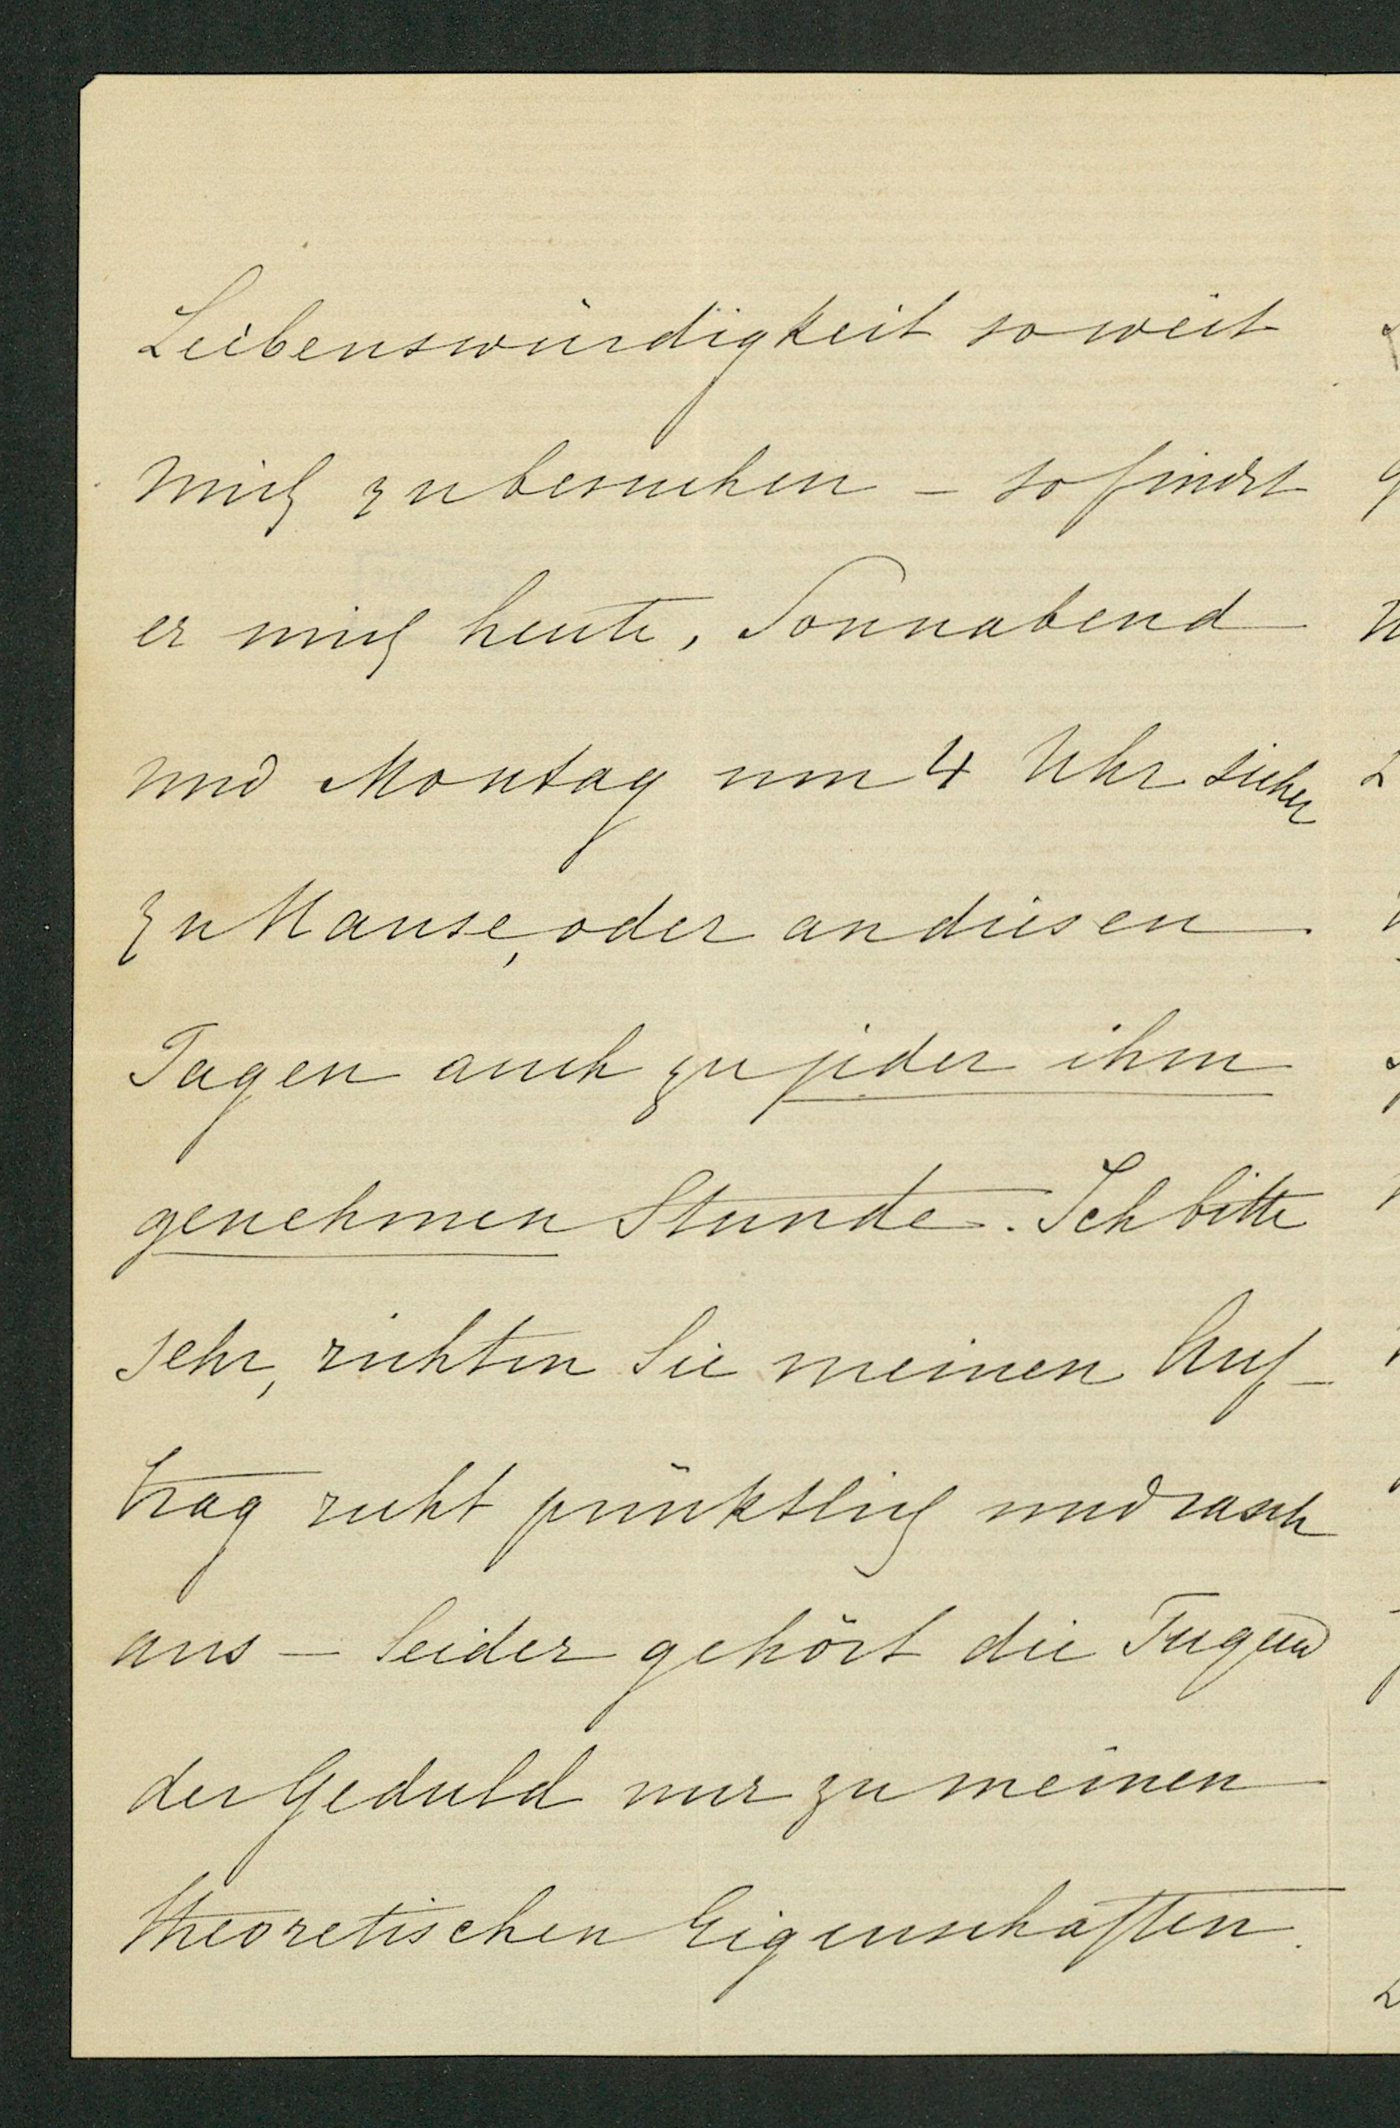 Liebenswürdigkeit so weit
mich zu besuchen – so findet
er mich heute, Sonnabend
und Montag um 4 Uhr sicher
zu Hause, oder an diesen
Tagen auch zu jeder ihm
genehmen Stunde. Ich bitte
sehr, richten Sie meinen Auf-
trag recht pünktlich und rasch
aus – leider gehört die Tugend
der Geduld nur zu meinen
theoretischen Eigenschaften.